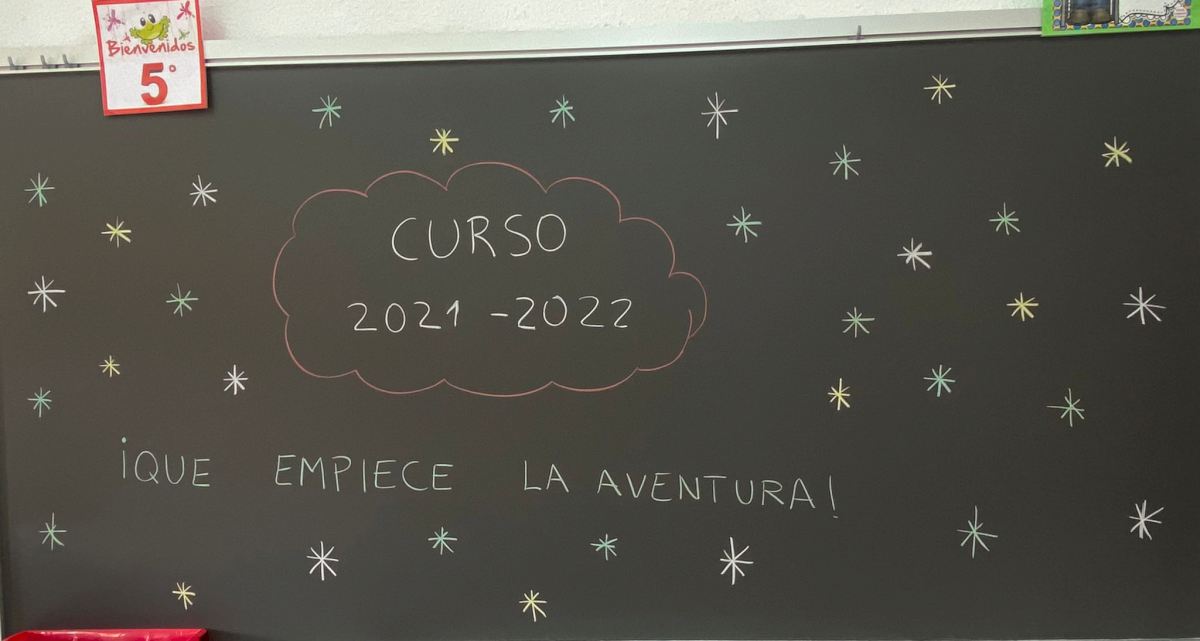 Bienvenidos
5º
CURSO
2021 - 2022
¡QUE EMPIECE LA AVENTURA!